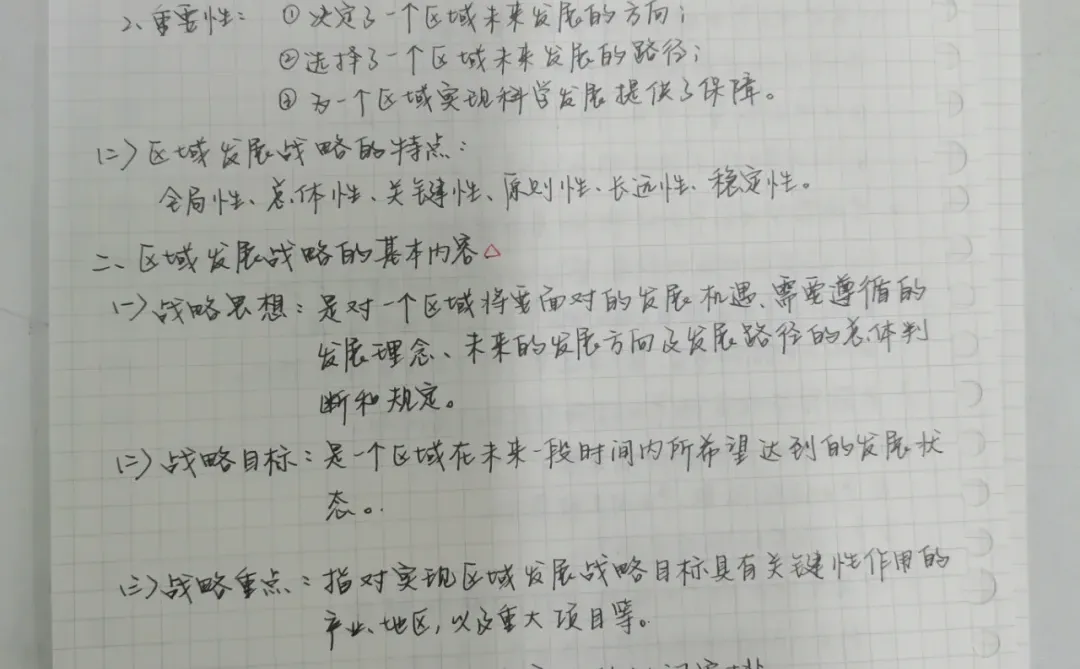 2、重要性：①决定了一个区域未来发展的方向；
②选择了一个区域未来发展的路径；
③为一个区域实现科学发展提供了保障。
(二)区域发展战略的特点：
全局性、总体性、关键性、原则性、长远性、稳定性。
二、区域发展战略的基本内容△
(一)战略思想：是对一个区域将要面对的发展机遇、需要遵循的
发展理念、未来的发展方向及发展路径的总体判
断和规定。
(二)战略目标：是一个区域在未来一段时间内所希望达到的发展状
态。
(三)战略重点：指对实现区域发展战略目标具有关键性作用的
产业、地区，以及重大项目等。